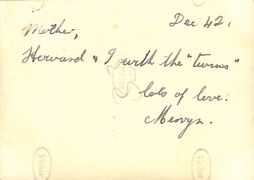 Dec 42.
Mother,
Howard & I with the "twins"
lots of love.
Mervyn.
Velox
Velox